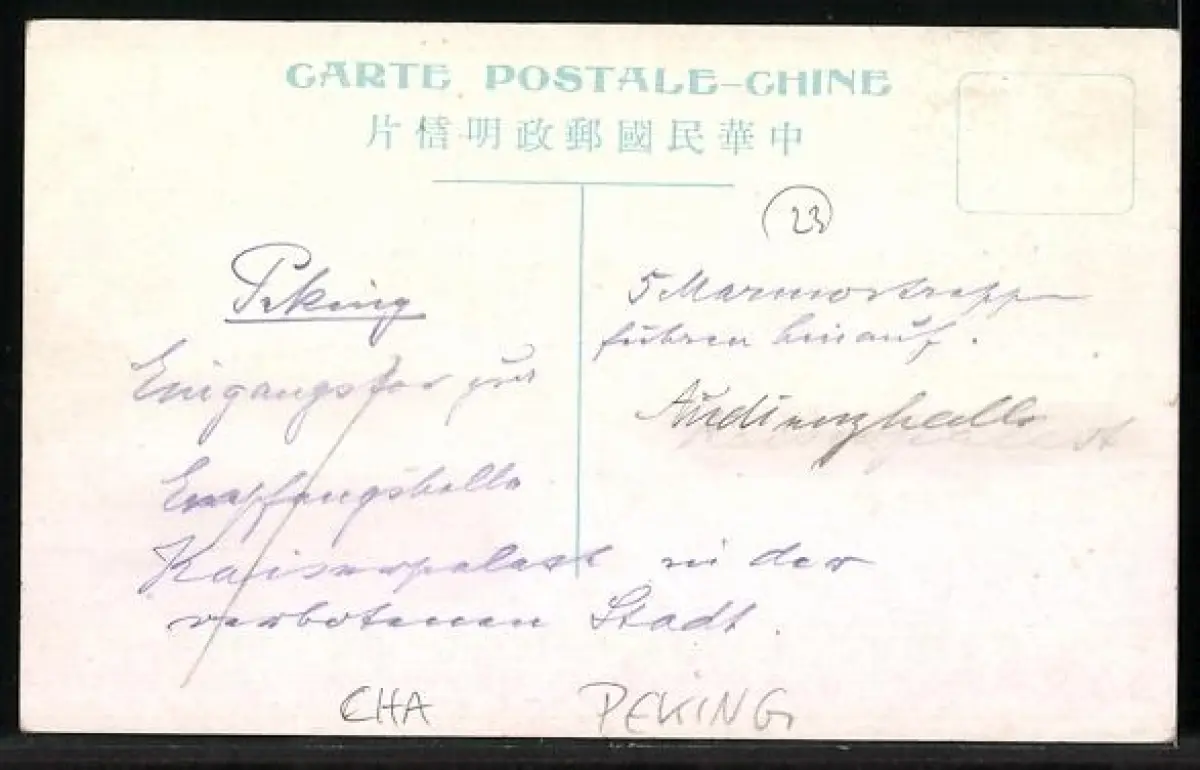 CARTE POSTALE-CHINE
片信明政郵國民華中
23
Peking
5 Marmortreppen
führen hinauf.
Eingangstor zur
Audienzhalle
Empfangshalle
Kaiserpalast in der
verbotenen Stadt.
CHA PEKING